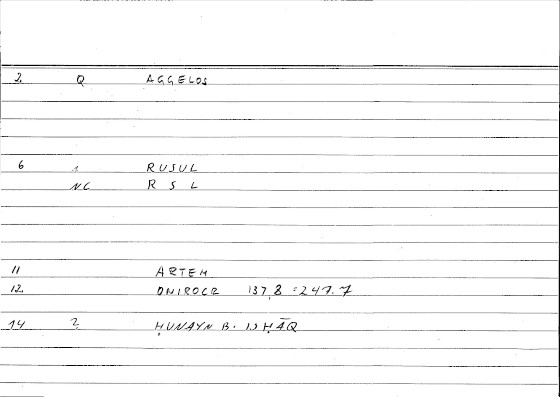 2. Q AGGELOS
6 1 RUSUL
N.C R S L
11 ARTEM
12. ONIROCR 137,8 = 247.7
14 2 ḤUNAYN B. ISḤĀQ